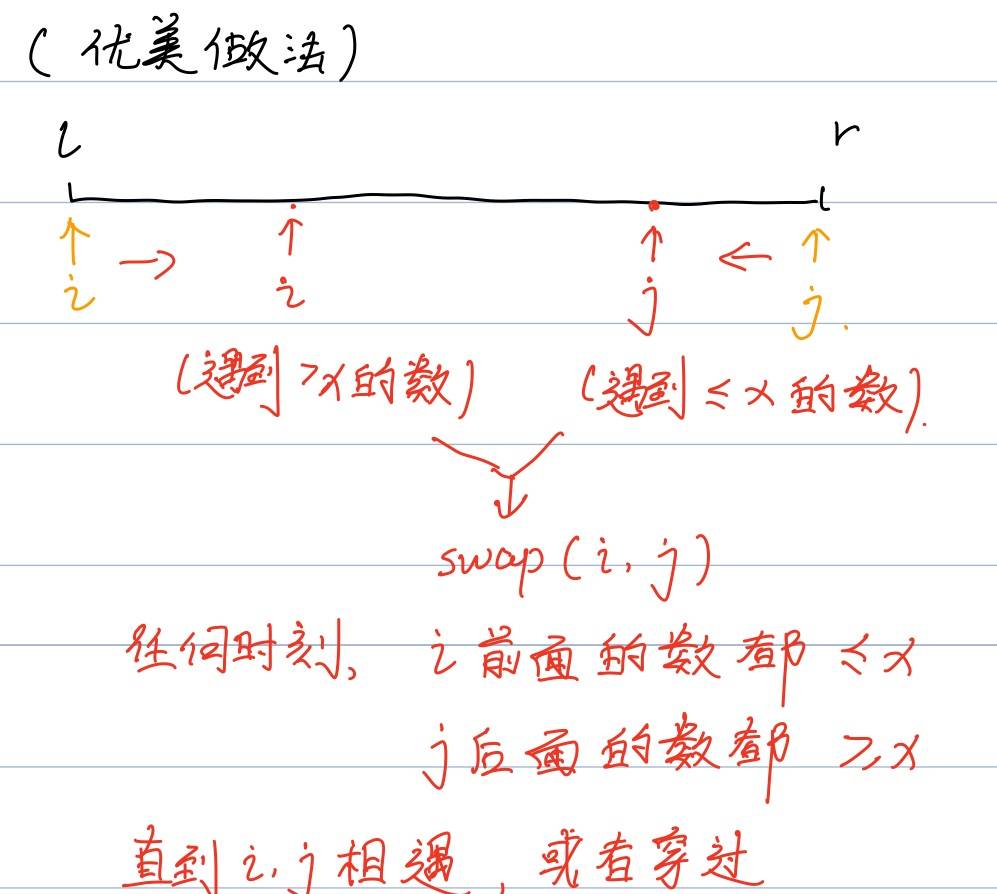 (优美做法)
l r
i i j j.
(遇到>x的数) (遇到≤x的数).
swap(i, j)
任何时刻, i前面的数都≤x
j后面的数都≥x
直到i, j相遇, 或者穿过